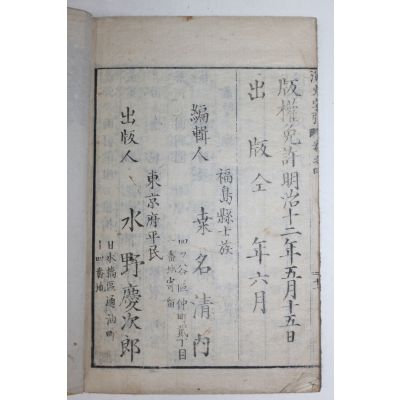 版權免許明治十二年五月十五日
出版仝年六月
福島縣士族
編輯人 桑名清
四ツ谷區仲町貳丁目
一番地寄留
東京府平民
出版人 水野慶次郎
日本橋區通油町
十四番地